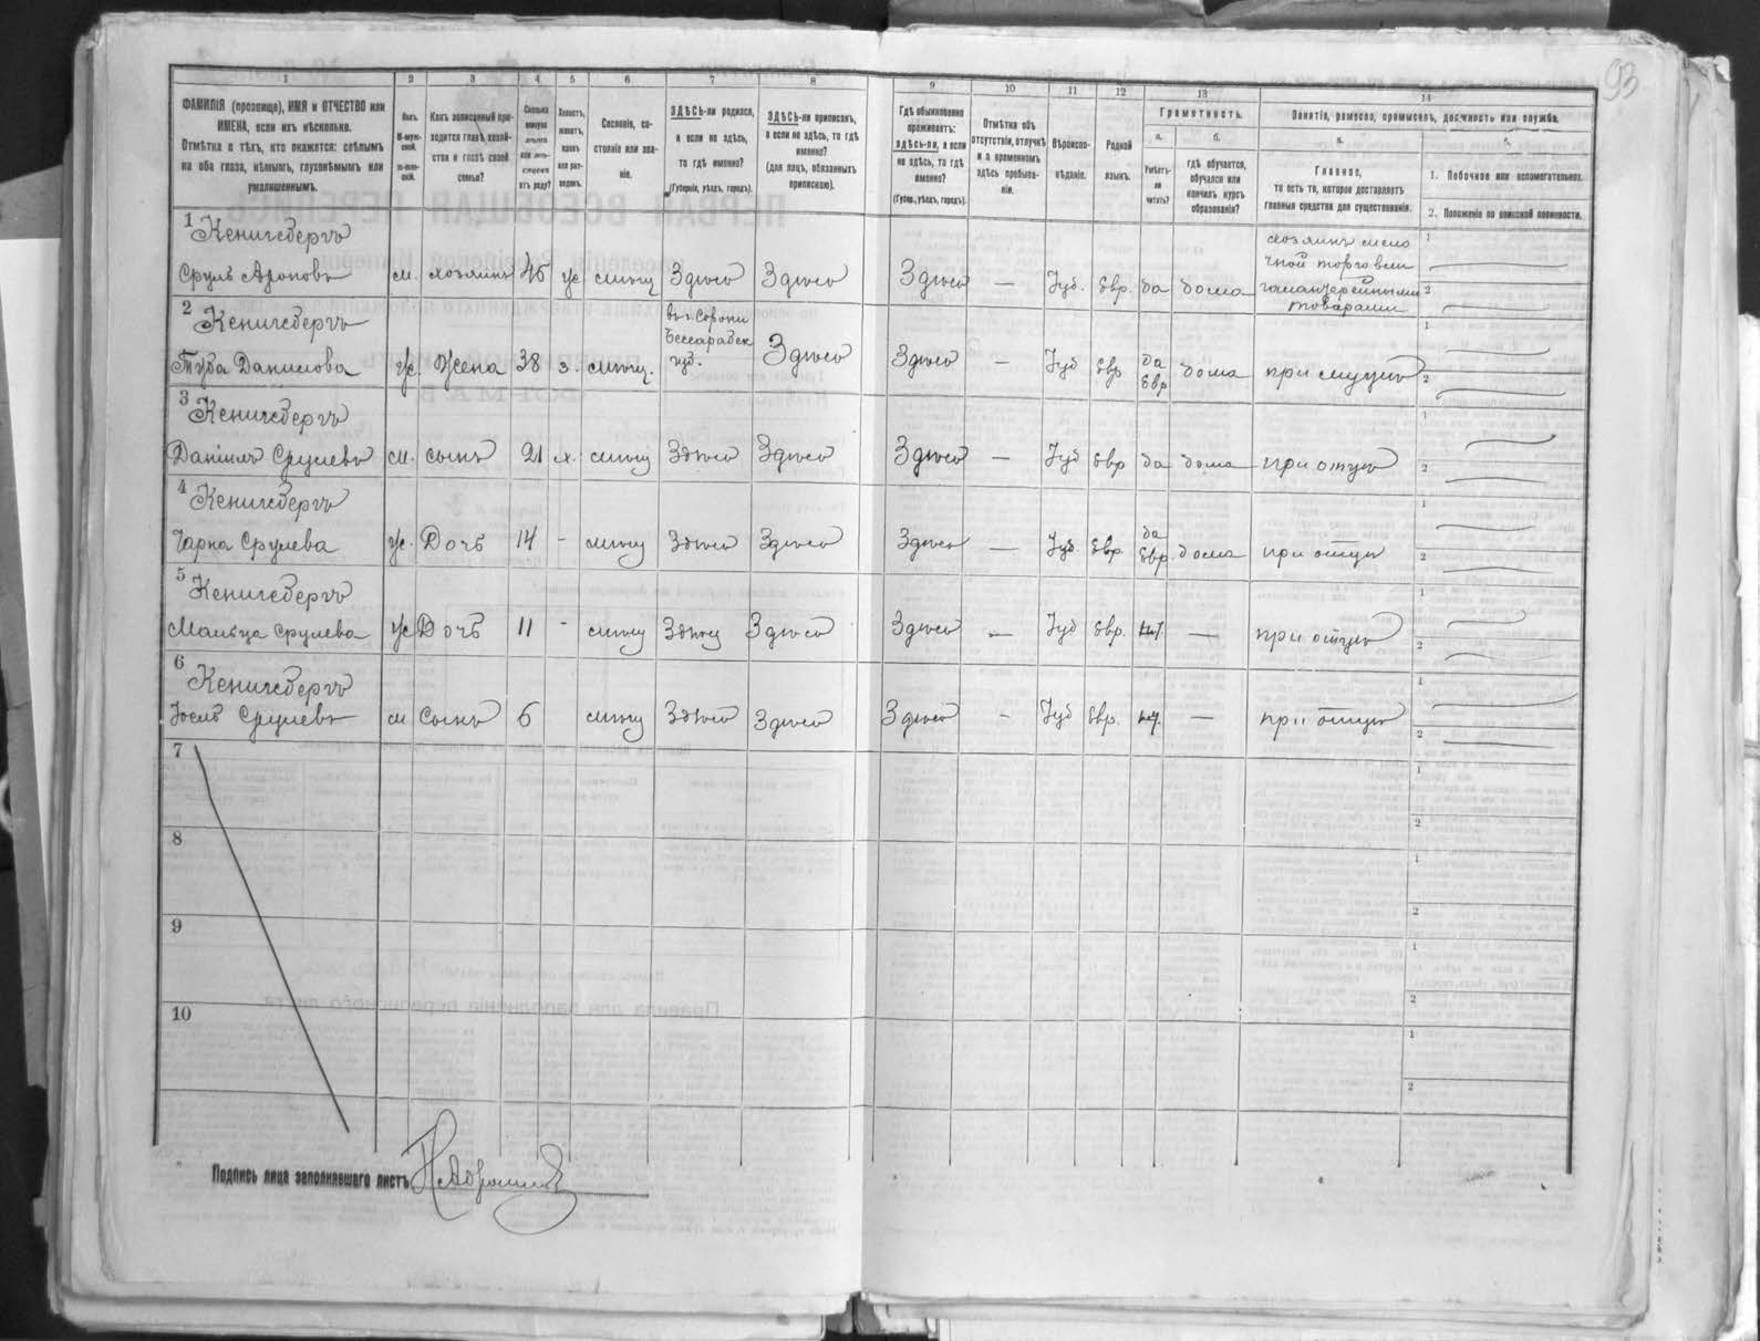 93
1 2 3 4 5 6 7 8 9 10 11 12 13 14
ФАМИЛІЯ (прозвище), ИМЯ и ОТЧЕСТВО или
ИМЕНА, если ихъ нѣсколько.
Отмѣтка о тѣхъ, кто окажется: слѣпымъ
на оба глаза, нѣмымъ, глухонѣмымъ или
умалишеннымъ.
Полъ.
М-муж-
ской.
Ж-жен-
скій.
Какъ записанный при-
ходится главѣ хозяй-
ства и главѣ своей
семьи?
Сколько
минуло
лѣтъ
или мѣ-
сяцевъ
отъ роду?
Холостъ,
женатъ,
вдовъ
или раз-
веденъ.
Сословіе, со-
стояніе или зва-
ніе.
ЗДѢСЬ-ли родился,
а если не здѣсь,
то гдѣ именно?
(Губернія, уѣздъ, городъ).
ЗДѢСЬ-ли приписанъ,
а если не здѣсь, то гдѣ
именно?
(для лицъ, обязанныхъ
припискою).
Гдѣ обыкновенно
проживаетъ:
здѣсь-ли, а если
не здѣсь, то гдѣ
именно?
(Губер., уѣздъ, городъ).
Отмѣтка объ
отсутствіи, отлучкѣ
и о временномъ
здѣсь пребыва-
ніи.
Вѣроиспо-
вѣданіе.
Родной
языкъ.
Грамотность.
а.
Умѣетъ-
ли
читать?
б.
гдѣ обучается,
обучался или
кончилъ курсъ
образованія?
Занятія, ремесло, промыселъ, должность или служба.
а.
Главное,
то есть то, которое доставляетъ
главныя средства для существованія.
1. Побочное или вспомогательное.
2. Положеніе по воинской повинности.
1 Кенигсбергъ
Сруль Ароновъ м. хозяинъ 45 ж мѣщ Здѣсь Здѣсь Здѣсь — Іуд. Евр. да дома
хозяинъ мело
чной торговли
галантерейными
товарами
1
2
2 Кенигсбергъ
Туба Данилова ж. Жена 38 з. мѣщ.
въ г. Сороки
Бессарабск
губ.
Здѣсь Здѣсь — Іуд Евр да Евр дома при мужѣ
1
2
3 Кенигсбергъ
Даніилъ Срулевъ м. сынъ 21 х. мѣщ Здѣсь Здѣсь Здѣсь — Іуд Евр да дома при отцѣ
1
2
4 Кенигсбергъ
Чарна Срулева ж. Дочь 14 - мѣщ Здѣсь Здѣсь Здѣсь — Іуд. Евр. да Евр дома при отцѣ
1
2
5 Кенигсбергъ
Мальца Срулева ж Дочь 11 - мѣщ Здѣсь Здѣсь Здѣсь — Іуд Евр. — при отцѣ
1
2
6 Кенигсбергъ
Іосль Срулевъ м Сынъ 6 мѣщ Здѣсь Здѣсь Здѣсь - Іуд Евр. — при отцѣ
1
2
7
1
2
8
1
2
9
1
2
10
1
2
Подпись лица заполнявшаго листъ